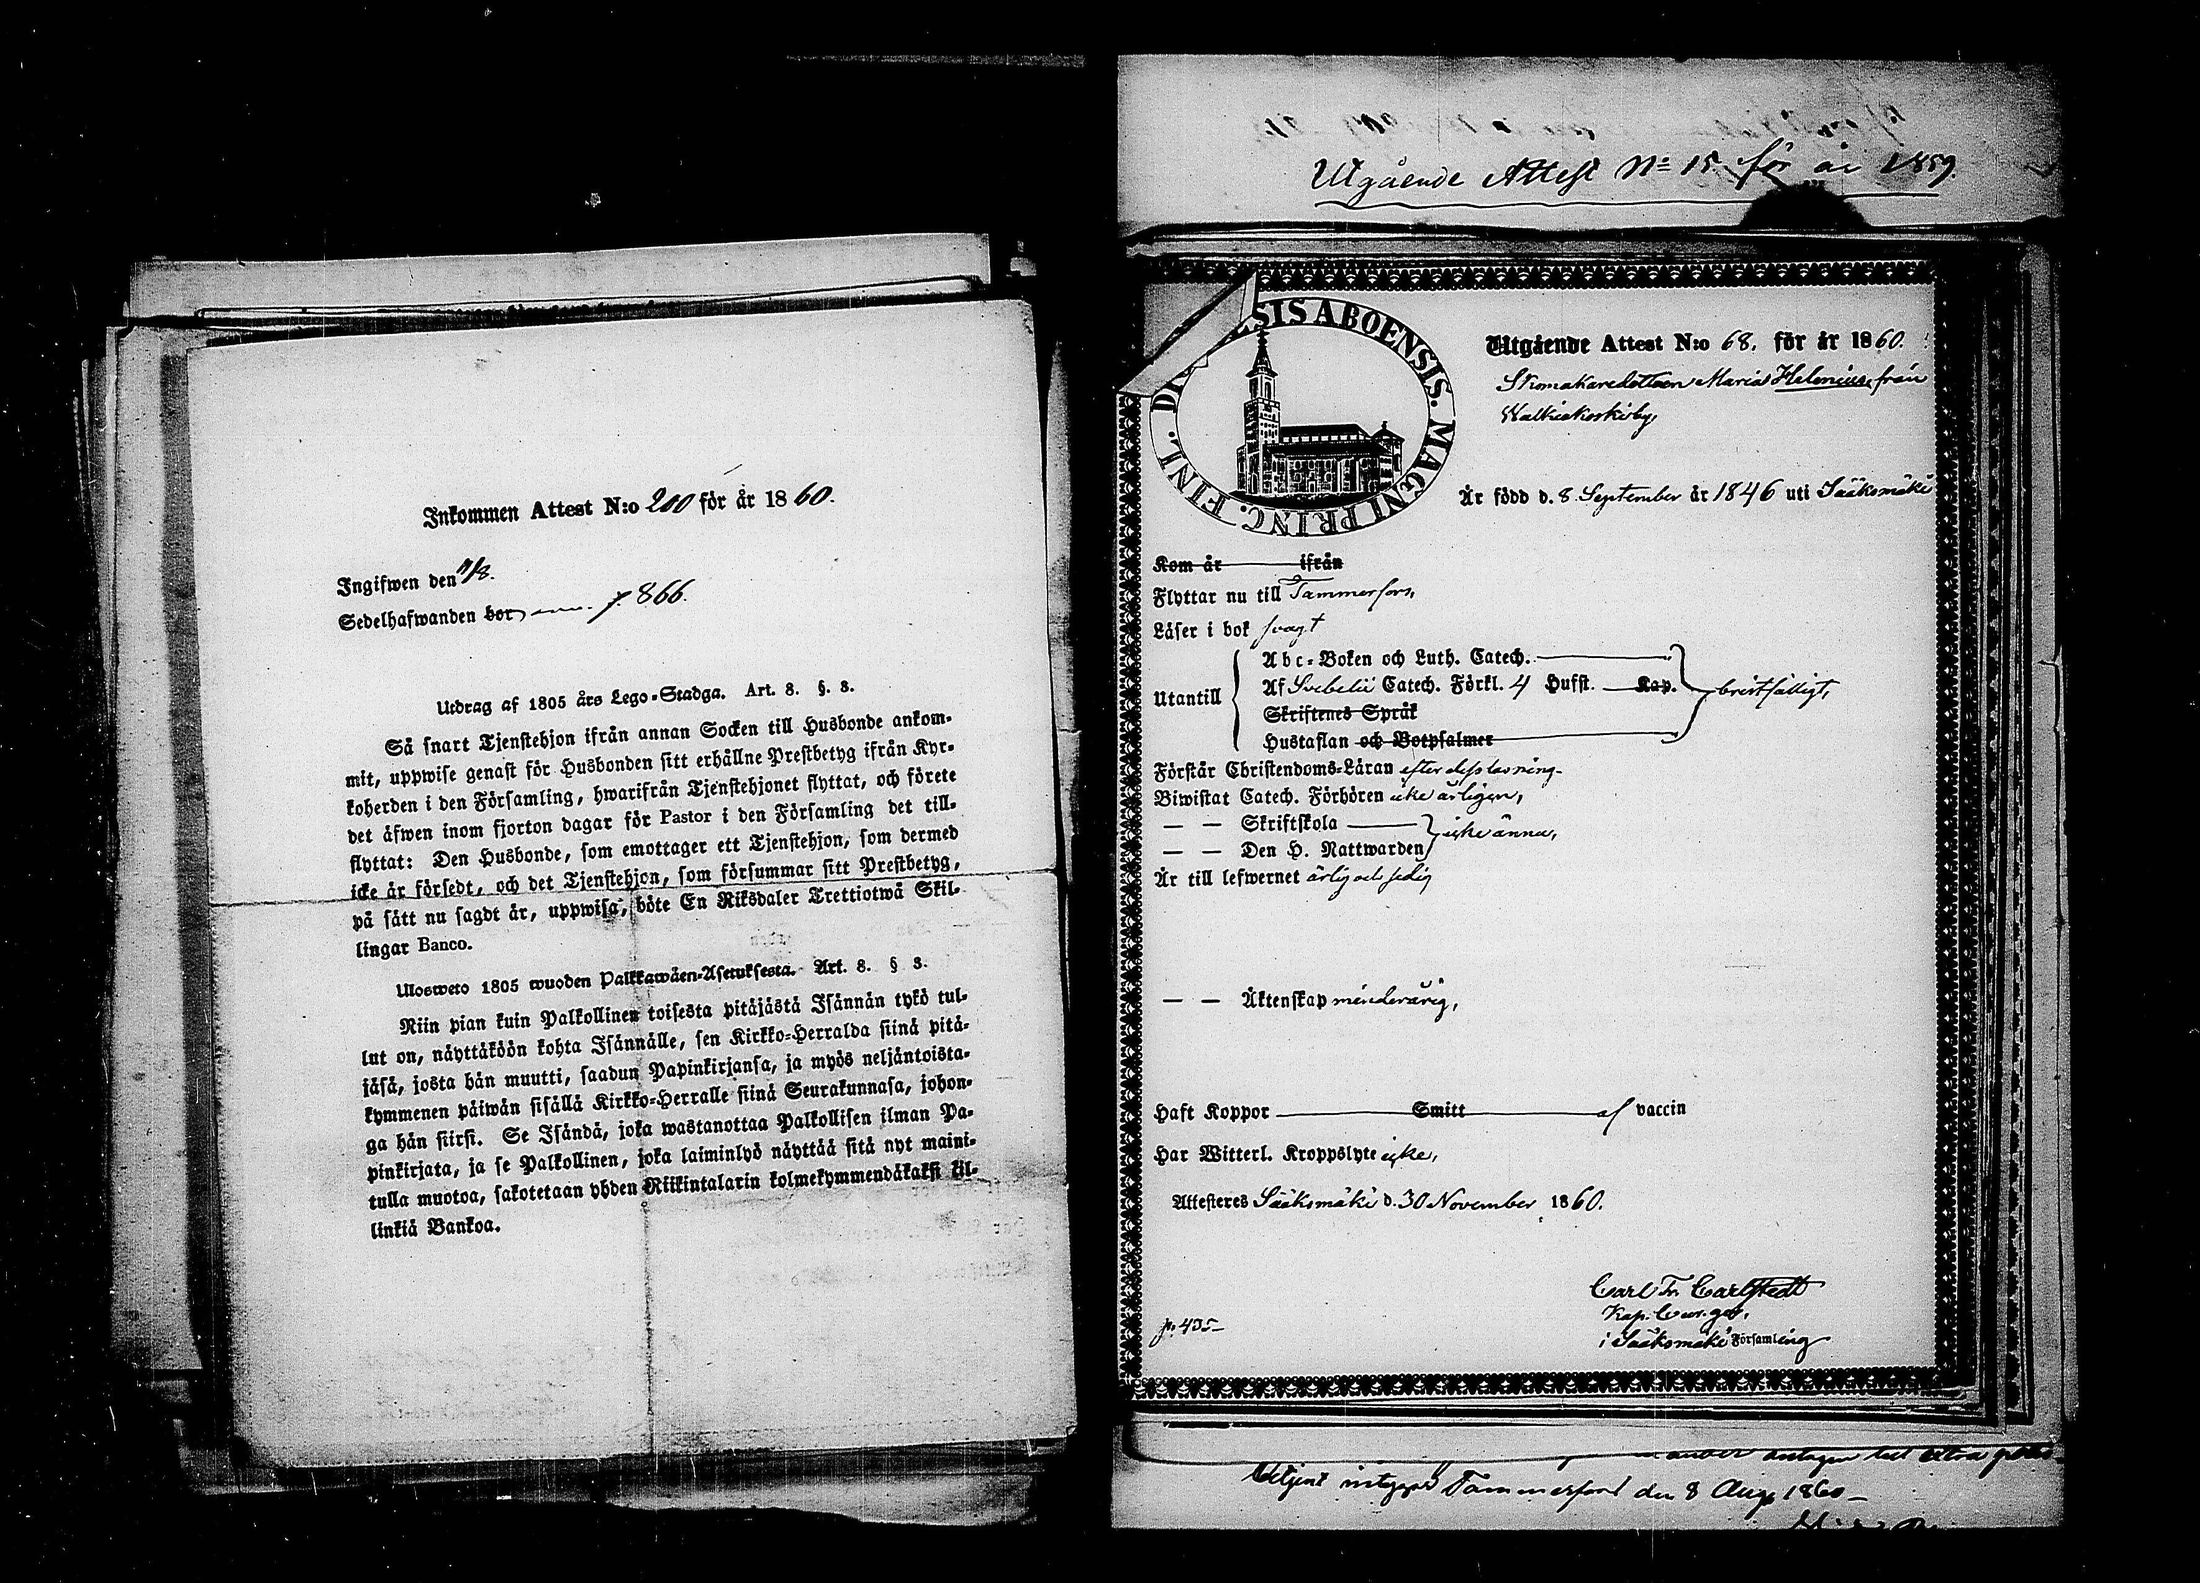 Inkommen Attest N:o 200 för år 1860.
Ingifwen den 11/8.
Sedelhafwanden bor p. 866.
Utdrag af 1805 års Lego-Stadga. Art. 8. §. 3.
Så snart Tjenstehjon ifrån annan Socken till Husbonde ankom-
mit, uppwise genast för Husbonden sitt erhållne Prestbetyg ifrån Kyr-
koherden i den Församling, hwarifrån Tjenstehjonet flyttat, och förete
det äfwen inom fjorton dagar för Pastor i den Församling det till-
flyttat: Den Husbonde, som emottager ett Tjenstehjon, som dermed
icke är försedt, och det Tjenstehjon, som försummar sitt Prestbetyg,
på sätt nu sagdt är, uppwisa, böte En Riksdaler Trettiotwå Skil-
lingar Banco.
Ulosweto 1805 wuoden Palkkawäen-Asetuksesta. Art. 8. § 3.
Niin pian kuin Palkollinen toisesta pitäjästä Isännän tykö tul-
lut on, näyttäköön kohta Isännälle, sen Kirkko-Herralda siinä pitä-
jäsä, josta hän muutti, saadun Papinkirjansa, ja myös neljäntoista-
kymmenen päiwän sisällä Kirkko-Herralle siinä Seurakunnasa, johon-
ga hän siirsi. Se Isändä, joka wastanottaa Palkollisen ilman Pa-
pinkirjata, ja se Palkollinen, joka laiminlyö näyttää sitä nyt maini-
tulla muotoa, sakotetaan yhden Riikintalarin kolmekymmendäkaksi kil-
linkiä Bankoa.
Utgående Attest No 15 för år 1859.
SIS ABOENSIS. MAGNI PRINC. FINL. D
Utgående Attest N:o 68. för år 1860.
Skomakaredottren Maria Helenius, från
Walkiakoskiby,
Är född d. 8 September år 1846 uti Sääksmäki
Kom år ifrån
Flyttar nu till Tammerfors,
Läser i bok svagt
Abc-Boken och Luth. Catech.
Utantill Af Svebelii Catech. Förkl. 4 Hufst. Kap. bristfälligt,
Skriftenes Språk
Hustaflan och Botpsalmer
Förstår Christendoms-Läran efter
Biwistat Catech. Förhören icke årligen,
— — Skriftskola icke ännu,
— — Den H. Nattwarden
Är till lefwernet ärlig och sedig
— — Äktenskap minderårig,
Haft Koppor Smitt af vaccin
Har Witterl. Kroppslyte icke,
Attesteres Sääksmäki d. 30 November 1860.
Carl Fr. Carlstedt
Kap.
i Sääksmäki Församling
p. 435
Tammerfors den 8 Aug 1860